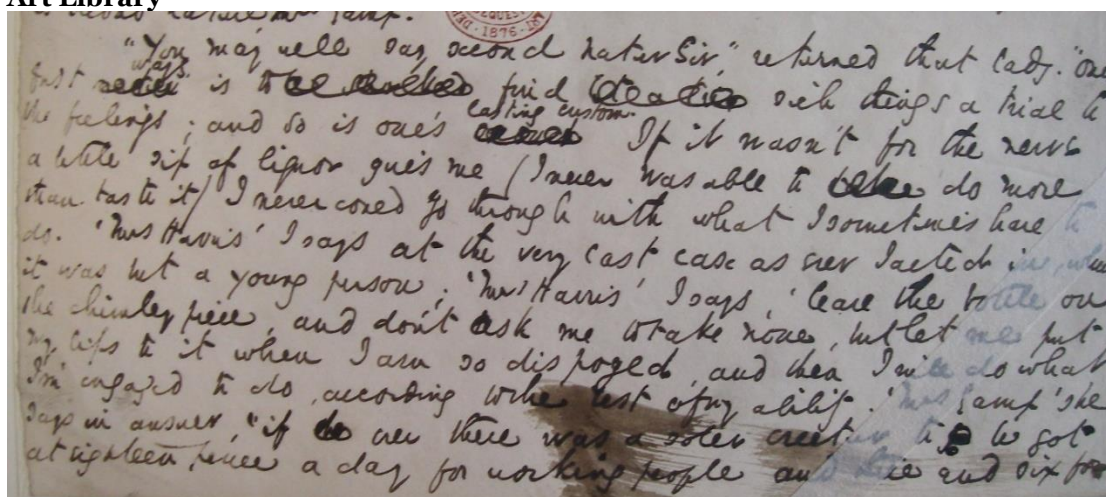 Art Library
is second nature Mrs Gamp."
1876
"You may well say second nater Sir," returned that lady. "One's
first ways is to find sich things a trial to
the feelings; and so is one's lasting custom. If it wasn't for the nerve
a little sip of liquor gives me (I never was able to do more
than taste it) I never coud go through with what I sometimes have to
do. 'Mrs Harris' I says at the very last case as ever I acted in, which
it was but a young person; 'Mrs Harris' I says, 'leave the bottle on
the chimley piece, and don't ask me to take none, but let me put
my lips to it when I am so dispoged, and then I will do what
I'm engaged to do, according to the best of my ability.' 'Mrs Gamp' she
says in answer, "if ever there was a sober creetur to be got
at eighteen pence a day for working people and three and six for